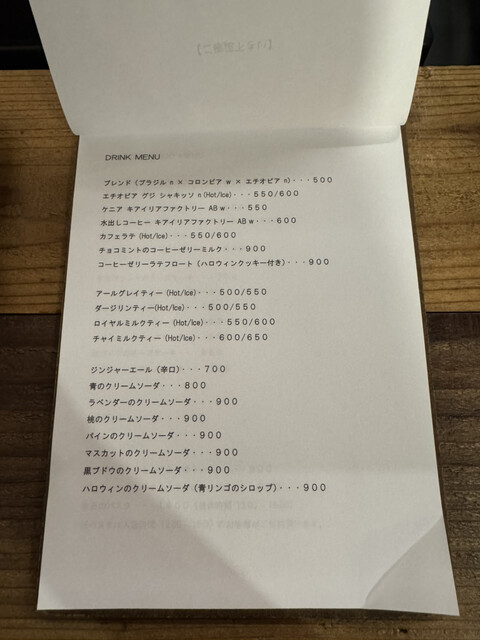 DRINK MENU
ブレンド（ブラジル n × コロンビア w × エチオピア n）・・・５００
エチオピア グジ シャキッソ n (Hot/Ice)・・・５５０/６００
ケニア キアイリアファクトリー AB w・・・５５０
水出しコーヒー キアイリアファクトリー AB w・・・６００
カフェラテ (Hot/Ice)・・・５５０/６００
チョコミントのコーヒーゼリーミルク・・・９００
コーヒーゼリーラテフロート（ハロウィンクッキー付き）・・・９００
アールグレイティー (Hot/Ice)・・・５００/５５０
ダージリンティー(Hot/Ice)・・・５００/５５０
ロイヤルミルクティー (Hot/Ice)・・・５５０/６００
チャイミルクティー (Hot/Ice)・・・６００/６５０
ジンジャーエール（辛口）・・・７００
青のクリームソーダ・・・８００
ラベンダーのクリームソーダ・・・９００
桃のクリームソーダ・・・９００
パインのクリームソーダ・・・９００
マスカットのクリームソーダ・・・９００
黒ブドウのクリームソーダ・・・９００
ハロウィンのクリームソーダ（青リンゴのシロップ）・・・９００